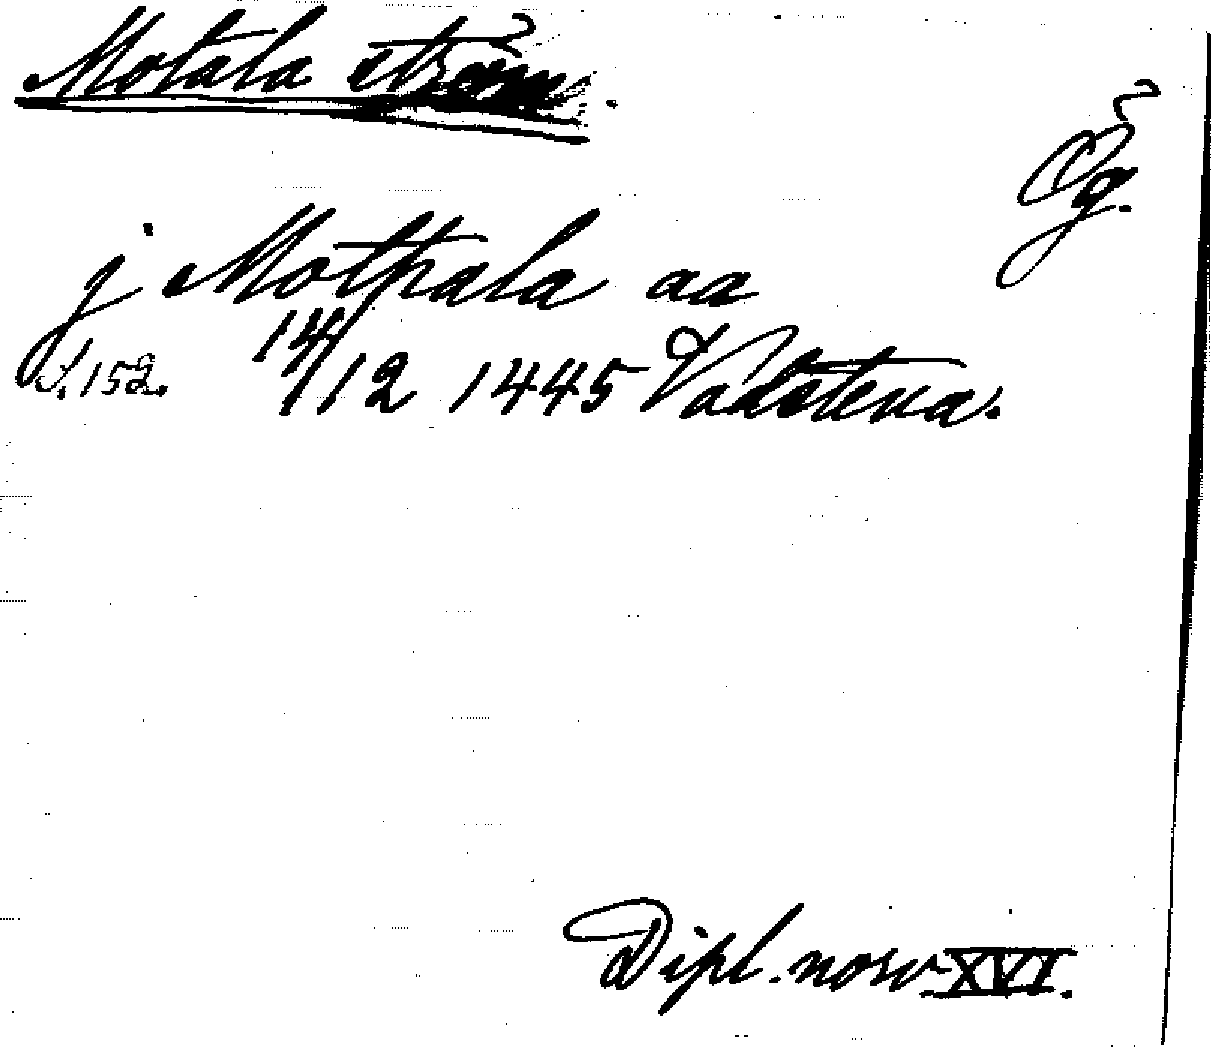 Motala ström.
Ög.
j Mothala aa
S. 152. 14/12 1445 Vadstena.
Dipl. norv. XVI.